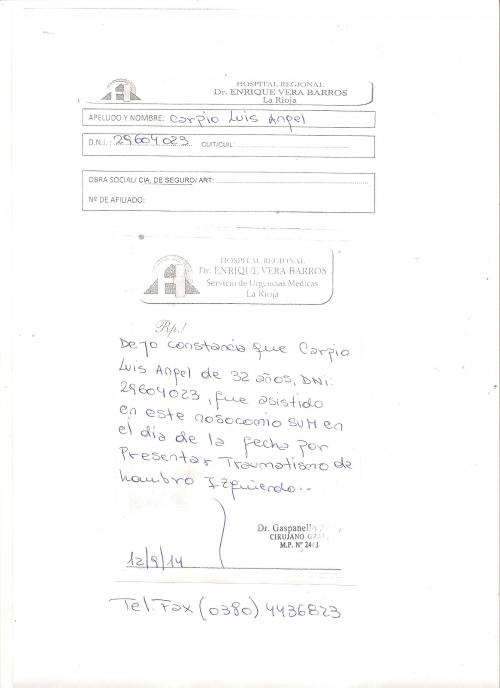 HOSPITAL REGIONAL
Dr. ENRIQUE VERA BARROS
La Rioja
APELLIDO Y NOMBRE: Carpio Luis Angel
D.N.I.: 29604023 CUIT/CUIL:
OBRA SOCIAL/ CIA. DE SEGURO/ ART:
Nº DE AFILIADO:
HOSPITAL REGIONAL
Dr. ENRIQUE VERA BARROS
Servicio de Urgencias Medicas
La Rioja
Rp./
Dejo constancia que Carpio
Luis Angel de 32 años, DNI:
29604023, fue asistido
en este nosocomio SUM en
el día de la fecha por
Presentar Traumatismo de
hombro Izquierdo..
Dr. Gaspanello
CIRUJANO
M.P. Nº 2403
12/9/14
Tel: Fax (0380) 4436823